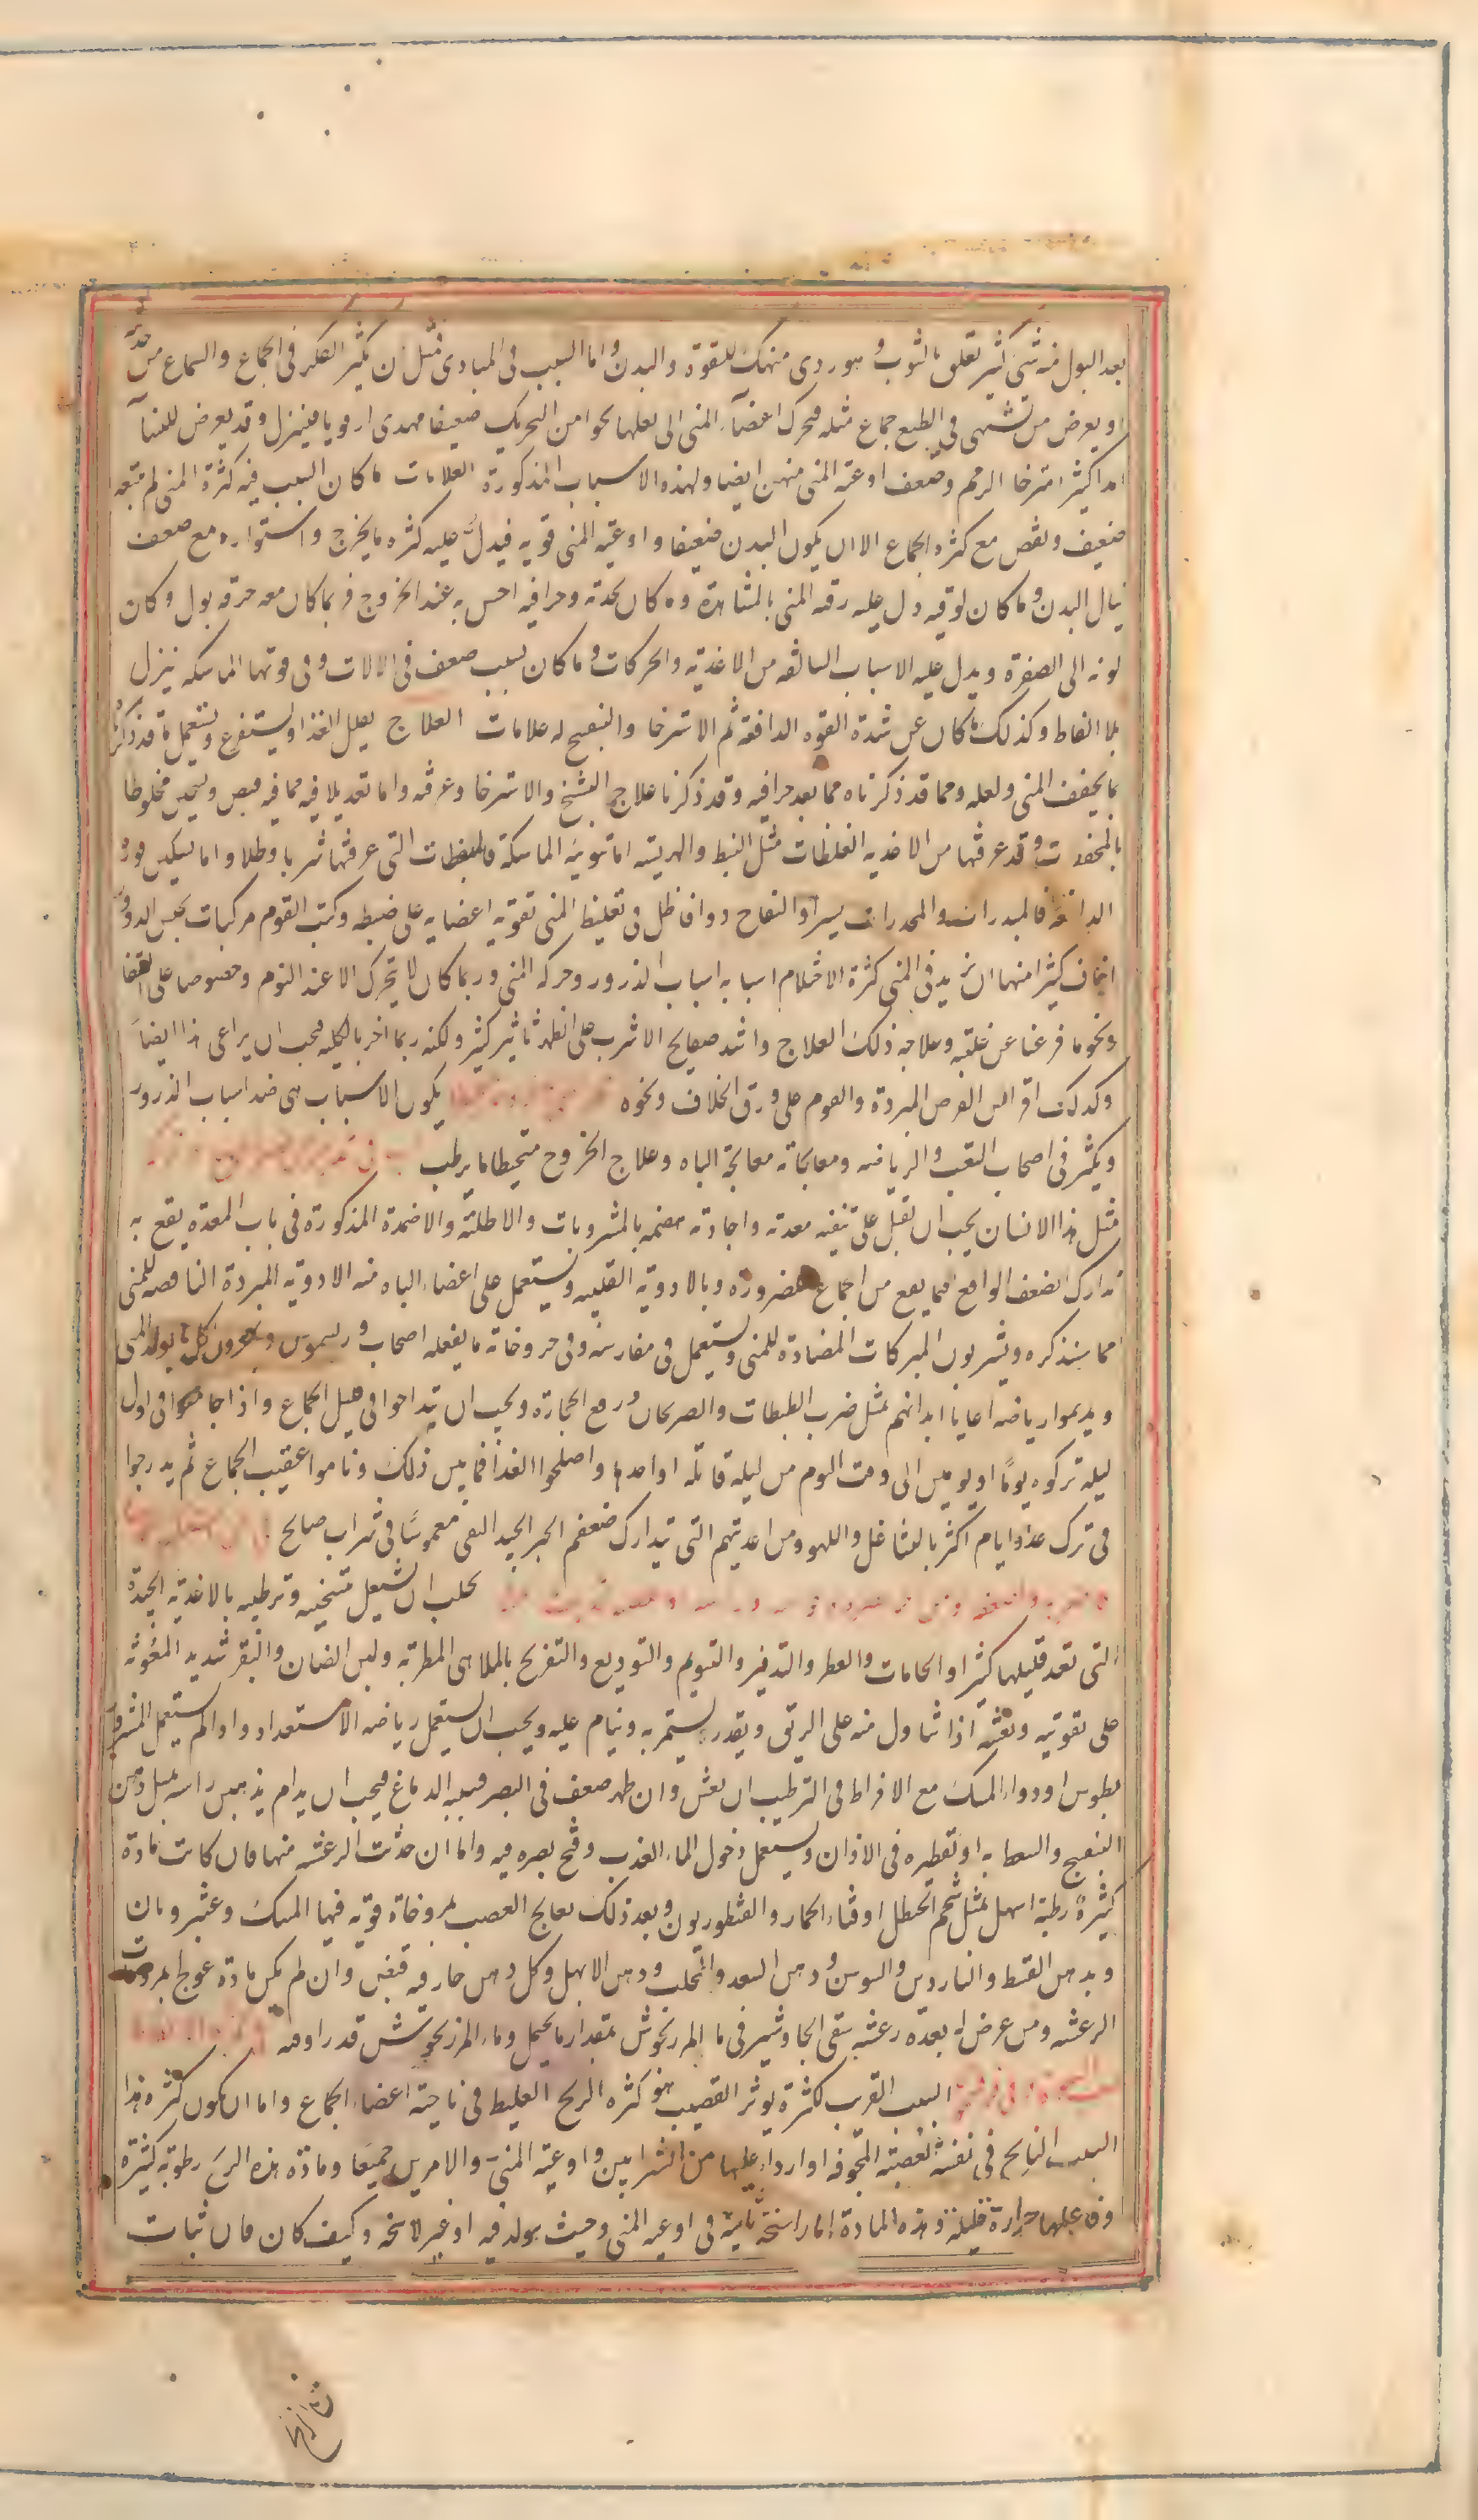 بعد البول منه شئ كثير تعلق بالثوب و هو ردى منهك للقوة والبدن واما السبب فى المبادى مثل ان يكثر الفكر فى الجماع والسماع من حديثه
او يعرض من تشهى فى الطبع جماع مثله فتحرك اعضاء المنى الى فعلها نحوا من التحريك ضعيفا فيمذى او قويا فينزل وقد يعرض للنساء
امذاء كثير لاسترخاء الرحم وضعف اوعية المنى منهن ايضا ولهذه الاسباب المذكورة العلامات ما كان السبب فيه كثرة المنى لم يتبعه
ضعيف ونقص مع كثرة الجماع الا ان يكون البدن ضعيفا واوعية المنى قوية فيدل عليه كثرة ما يخرج واستواره مع ضعف
ينال البدن وما كان لرقته دل عليه رقة المنى بالمشاهدة وما كان لحدته وحرافته احس به عند الخروج فربما كان معه حرقة بول وكان
لونه الى الصفرة ويدل عليه الاسباب السالفة من الاغذية والحركات وما كان بسبب ضعف فى الالات وفى قوتها الماسكة ينزل
بلا انعاظ وكذلك ما كان عن شدة القوة الدافعة ثم الاسترخاء والتشنج له علامات العلاج يقلل الغذا ويستفرغ ويستعمل ما قد ذكرنا
مما يجفف المنى ويقله ومما قد ذكرناه مما يعد حرافته وقد ذكرنا علاج التشنج والاسترخاء وعرفته واما تعديلا فيه فما فيه قبض وتسخين مخلوطا
بالمجففات وقد عرفتها من الاغذية المغلظات مثل البط والهريسة اما تقوية الماسكة فالمقبضات التى عرفتها شربا وطلاء واما تسكين قوة
الدافعة فالمبردات والمخدرات يسيرا والتفاح دواء فاضل فى تغليظ المنى تقوية اعضايه على ضبطه وكتب القوم مركبات بحبس الدرور
اخاف كثيرا منها ان يزيد فى المنى كثرة الاحتلام اسبابه اسباب الدرور وحركة المنى وربما كان لا يتحرك الا عند النوم وخصوصا على القفا
ونحو ما فرغنا عن علته وعلاجه ذلك العلاج واشد صفايح الاسرب على الظهر تاثير كثير ولكنه ربما اضر بالكلية فيجب ان يراعى هذا ايضا
وكذلك افتراش الفرش المبردة والنوم على ورق الخلاف ونحوه يكون الاسباب هى ضد اسباب الدرور
ويكثر فى اصحاب التعب والرياضة ومعالجاته معالجة الباه وعلاج الخروج متحيطا ما يرطب
مثل هذا الانسان يجب ان يقبل على تنقية معدته واجادة هضمه بالمشروبات والاطلية والاضمدة المذكورة فى باب المعدة يقع به
تدارك لضعف الواقع فما يقع من الجماع لضرورة وبالادوية القلبية ويستعمل على اعضاء الباه منه الادوية المبردة الناقصة للمنى
مما سنذكره ويشربون المركبات المضادة للمنى ويستعمل فى مفارشه وفى مروخاته ما يفعله اصحاب فريسموس ويهجرون كل ما يولد المنى
ويديموا رياضة اعالى ابدانهم بمثل ضرب الطبطاب والصولجان ورفع الحجارة ويجب ان يتداحوا فى قبل الجماع واذا جامعوا فى اول
ليلة تركوه يوما او يومين الى وقت النوم من ليلة قابلة او احدهما واصلحوا الغذا فيما بين ذلك وناموا عقيب الجماع ثم يدرجوا
فى ترك عدة ايام اكثر بالمشاغل واللهو ومن اغذيتهم التى يتدارك ضعفهم الخبز الجيد النقى مغموسا فى شراب صالح
يجب ان يشتغل بتسخينه وترطيبه بالاغذية الجيدة
التى تعد قليلها كثيرا والحمامات والعطر والتدثير والتنويم والتوديع والتفريح بالملاهى المطربة ولبن الضان والبقر شديد المغوثة
على تقويته ونعشه اذا تناول منه على الريق وبقدر يستمر به وينام عليه ويجب ان يستعمل رياضة الاستعداد واذا لم يستعمل المشروديـ
بطوس او دواء المسك مع الافراط فى الترطيب ان نعش وان ظهر ضعف فى البصر فسببه الدماغ فيجب ان يدام تدهين راسه بمثل دهن
البنفسج والسعط به او تقطيره فى الاذان ويستعمل دخول الماء العذب وفتح بصره فيه واما ان حدثت الرعشة منها فان كانت مادة
كثيرة رطبة اسهل بمثل شحم الحنظل او قثاء الحمار والقنطوريون وبعد ذلك يعالج العصب بمروخاة قوية فيها المسك وعنبر وبان
وبدهن القسط والناردين والسوسن ودهن السعد والمحلب ودهن الابهل وكل دهن حار فيه قبض وان لم يكن مادة عولج بمروخات
الرعشة ومن عرض له بعده رعشة سقى الجاوشير فى ماء المرزنجوش بمقدار ما يحتمل وماء المرزنجوش قدر اوقية
السبب القريب لكثرة توتر القضيب هو كثرة الريح الغليظ فى ناحية اعضاء الجماع واما ان يكون كثرة هذا
السبب النافخ فى نفسه لعصبته المجوفة او اردا عليها من الشرايين واوعية المنى والامرين جميعا ومادة هذه الريح رطوبة كثيرة
وفاعلها حرارة قليلة وهذه المادة اما راسخة ثابتة فى اوعية المنى وحيث يولد فيه او غير لاسخة وكيف كان فان ثبات